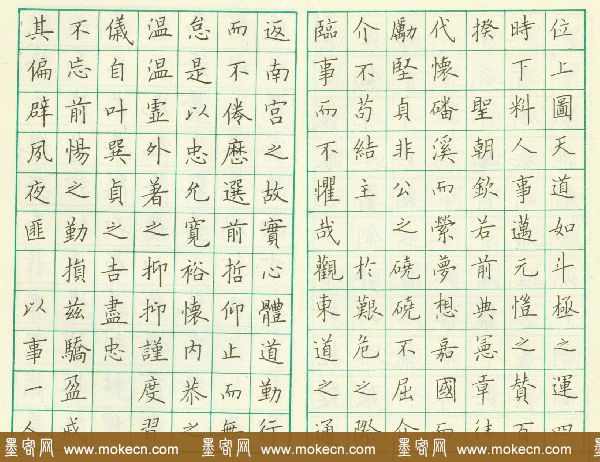 位上圖天道如斗極之運四
時下料人事邁元愷之贊百
揆聖朝欽若前典憲章往
代懷磻溪而縈夢想嘉國而
勵堅貞非公之磽磽不屈介
介不苟結主於艱危之際
臨事而不懼哉觀東道之通
返南宮之故實心體道勤行
而不倦歷選前哲仰止而無
怠是以忠允寬裕懷內恭之
溫溫霊外著之抑抑謹度習
儀自叶巽貞之吉盡忠
不忘前惕之勤損茲驕盈戒
其偏辟夙夜匪以事一人
墨客网 www.mokecn.com 墨客网 www.mokecn.com 墨客网 www.mokecn.com